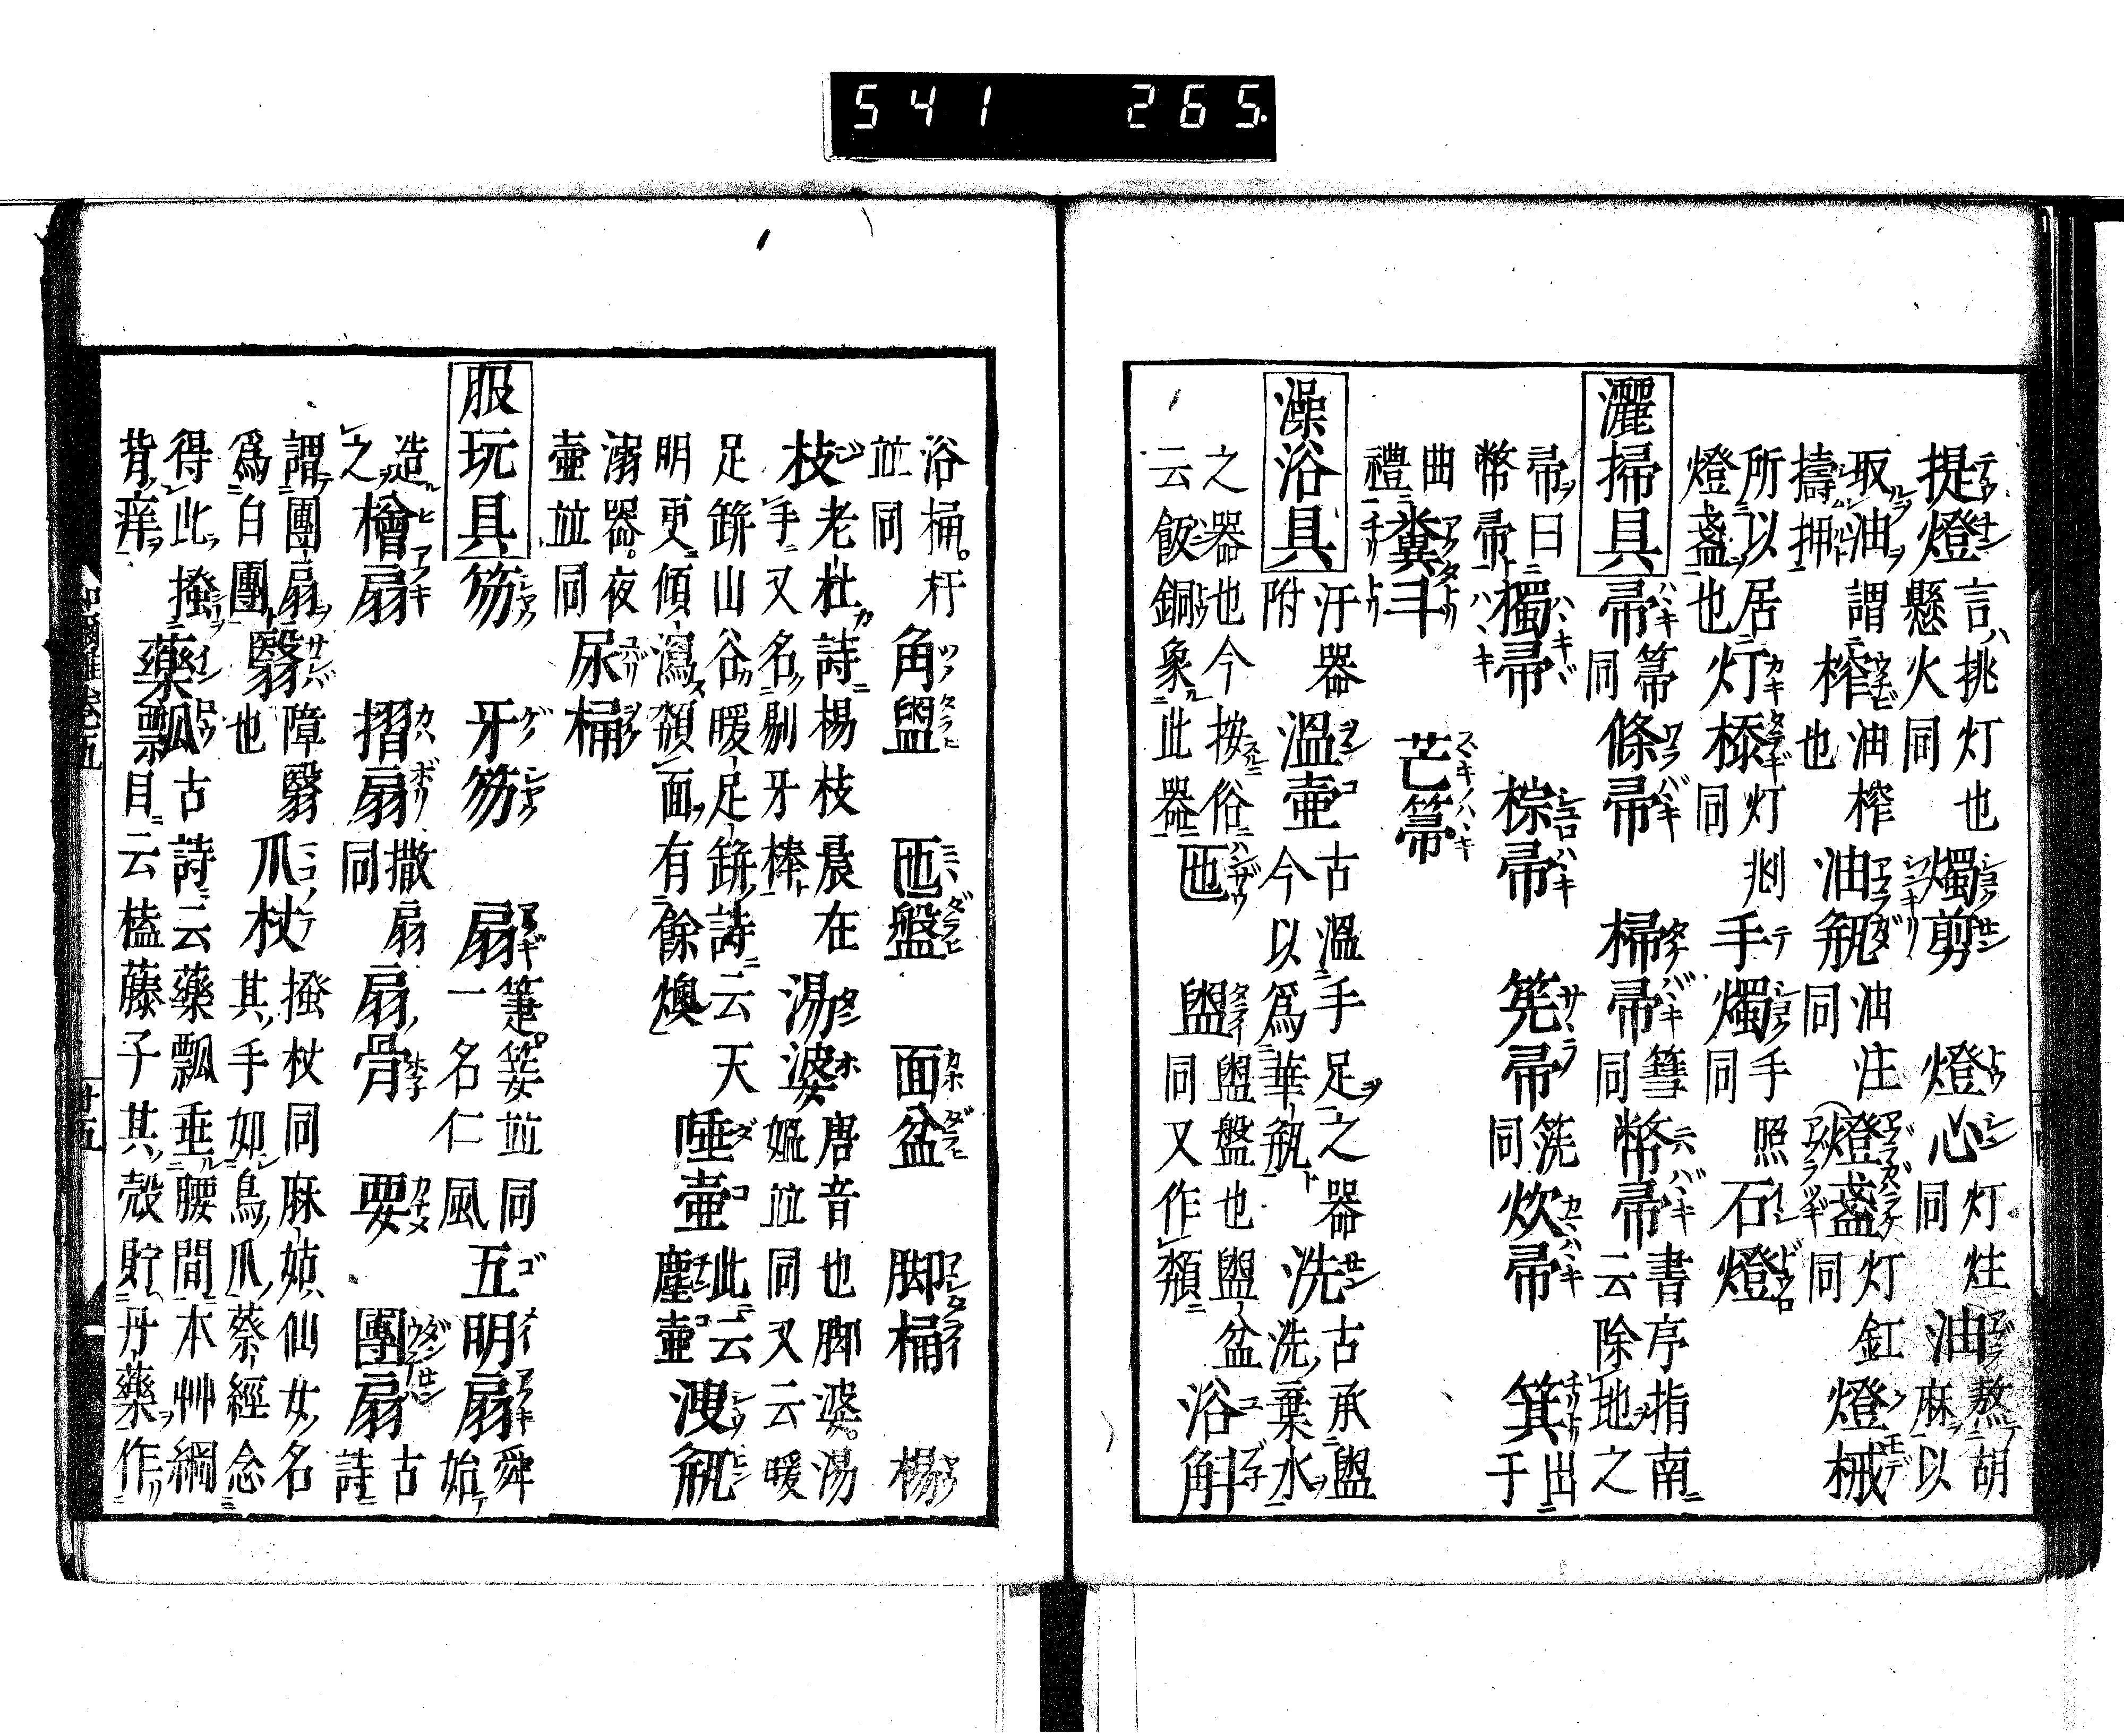 提燈言挑灯也懸火同燭剪 燈心灯炷同油熬胡麻以
取油謂擣押榨油榨也油瓶油注同燈盞灯釭同燈械
所以居燈盞也灯㮇灯同手燭手照同石燈
灑掃具帚箒同條帚 掃帚篲同幣帚書序指南云除地之
帚曰幣帚獨帚 棕帚 筅帚筅同炊帚 箕出于
曲禮糞斗 芒箒
澡浴具汙器附溫壷古溫手足之器今以爲華瓶洗古承盥洗棄水
之器也今按俗云飯銅象此器匜 盥盥盤也盥盆同又作頮浴斛
浴桶杅並同角盥 匜盤 面盆 脚桶 楊
枝老杜詩楊枝晨在手又名剔牙棒湯婆唐音也脚婆湯媼並同又云暖
足缾山谷暖足缾詩云天明更傾瀉頮面有餘燠唾壷此云塵壷溲瓶
溺器夜壷並同尿桶
服玩具笏 牙笏 扇箑並同一名仁風五明扇舜始
造之檜扇 摺扇撒扇同扇骨 要 團扇古詩
謂團扇爲白團翳障翳也爪杖搔杖同麻姑仙女名其手如鳥爪蔡經念
得此搔背痒藥瓢古詩云藥瓢垂腰間本艸綱目云榼藤子其殼貯丹藥作
541 265